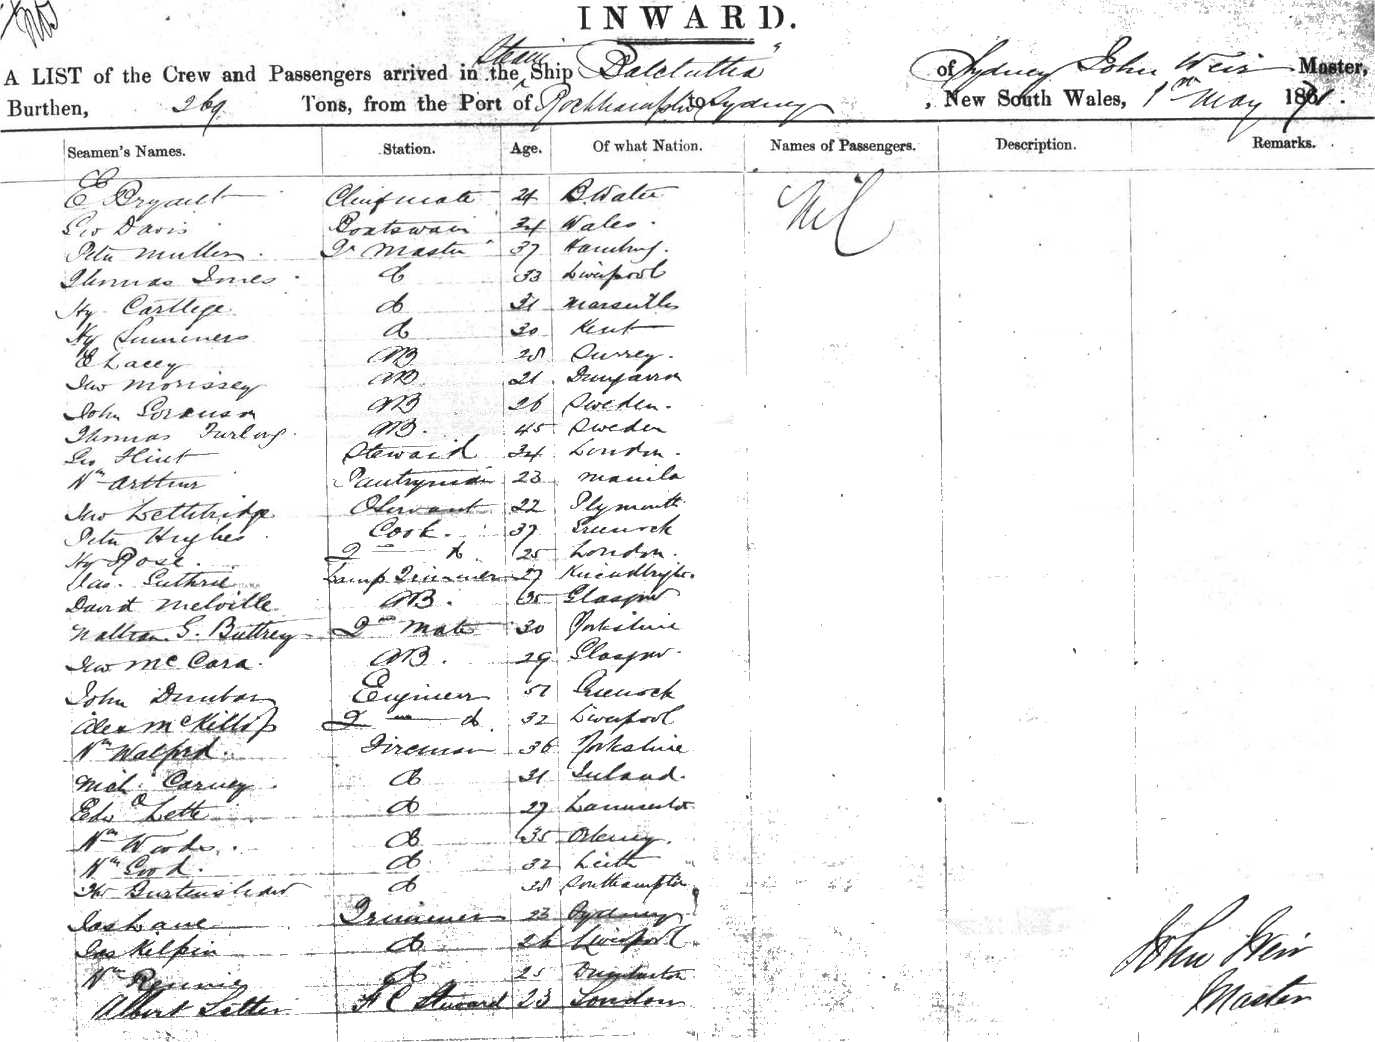 INWARD.
Steam
A LIST of the Crew and Passengers arrived in the Ship "Balclutha" of Sydney John Weir Master,
Burthen, 269 Tons, from the Port of Rockhampton to Sydney, New South Wales, 1st May 1871.
Seamen's Names. Station. Age. Of what Nation. Names of Passengers. Description. Remarks.
E Bryant Chief mate 24 Nil
Geo Davis Boatswain 34 Wales.
Peter Muller Qr Master 37 Hamburg.
Thomas Jones do 33 Liverpool
Hy Cartlege do 31 Marseilles
Hy Summers do 30 Kent
E Lacey AB 28 Surrey.
Jno Morissey AB 21 Dungarvon
John Soranson AB 26 Sweden.
Thomas Furlong AB. 45 Sweden
Geo Flint Steward 34 London.
Wm Arthur Pantryman 23 Manila
Jno Lethbridge Servant 22 Plymouth
Peter Hughes Cook. 37 Greenock
Hy Rose. 2nd do 25 London.
Jas. Guthrie Lamp Trimmer 27
David Melville AB. 35 Glasgow
Nathan G. Buttrey 2nd Mate 30 Yorkshire
Jno McCara. AB. 29 Glasgow.
John Dunbar Engineer 51 Greenock
Alex McKillop 2nd do 32 Liverpool
Wm Walford. Fireman 36 Yorkshire
Mich Carney do 31 Ireland.
Edwd Lette do 27
Wm Woods. do 35 Orkney.
Wm Good. do 32 Leith
Thos Burtenshaw do 28 Southampton
Jas Lane Trimmer 23 Sydney
Jas Kilpin do 26 Liverpool.
Wm Rennie do 25 Dumbarton
Albert Letter F C Steward 23 London
John Weir
Master